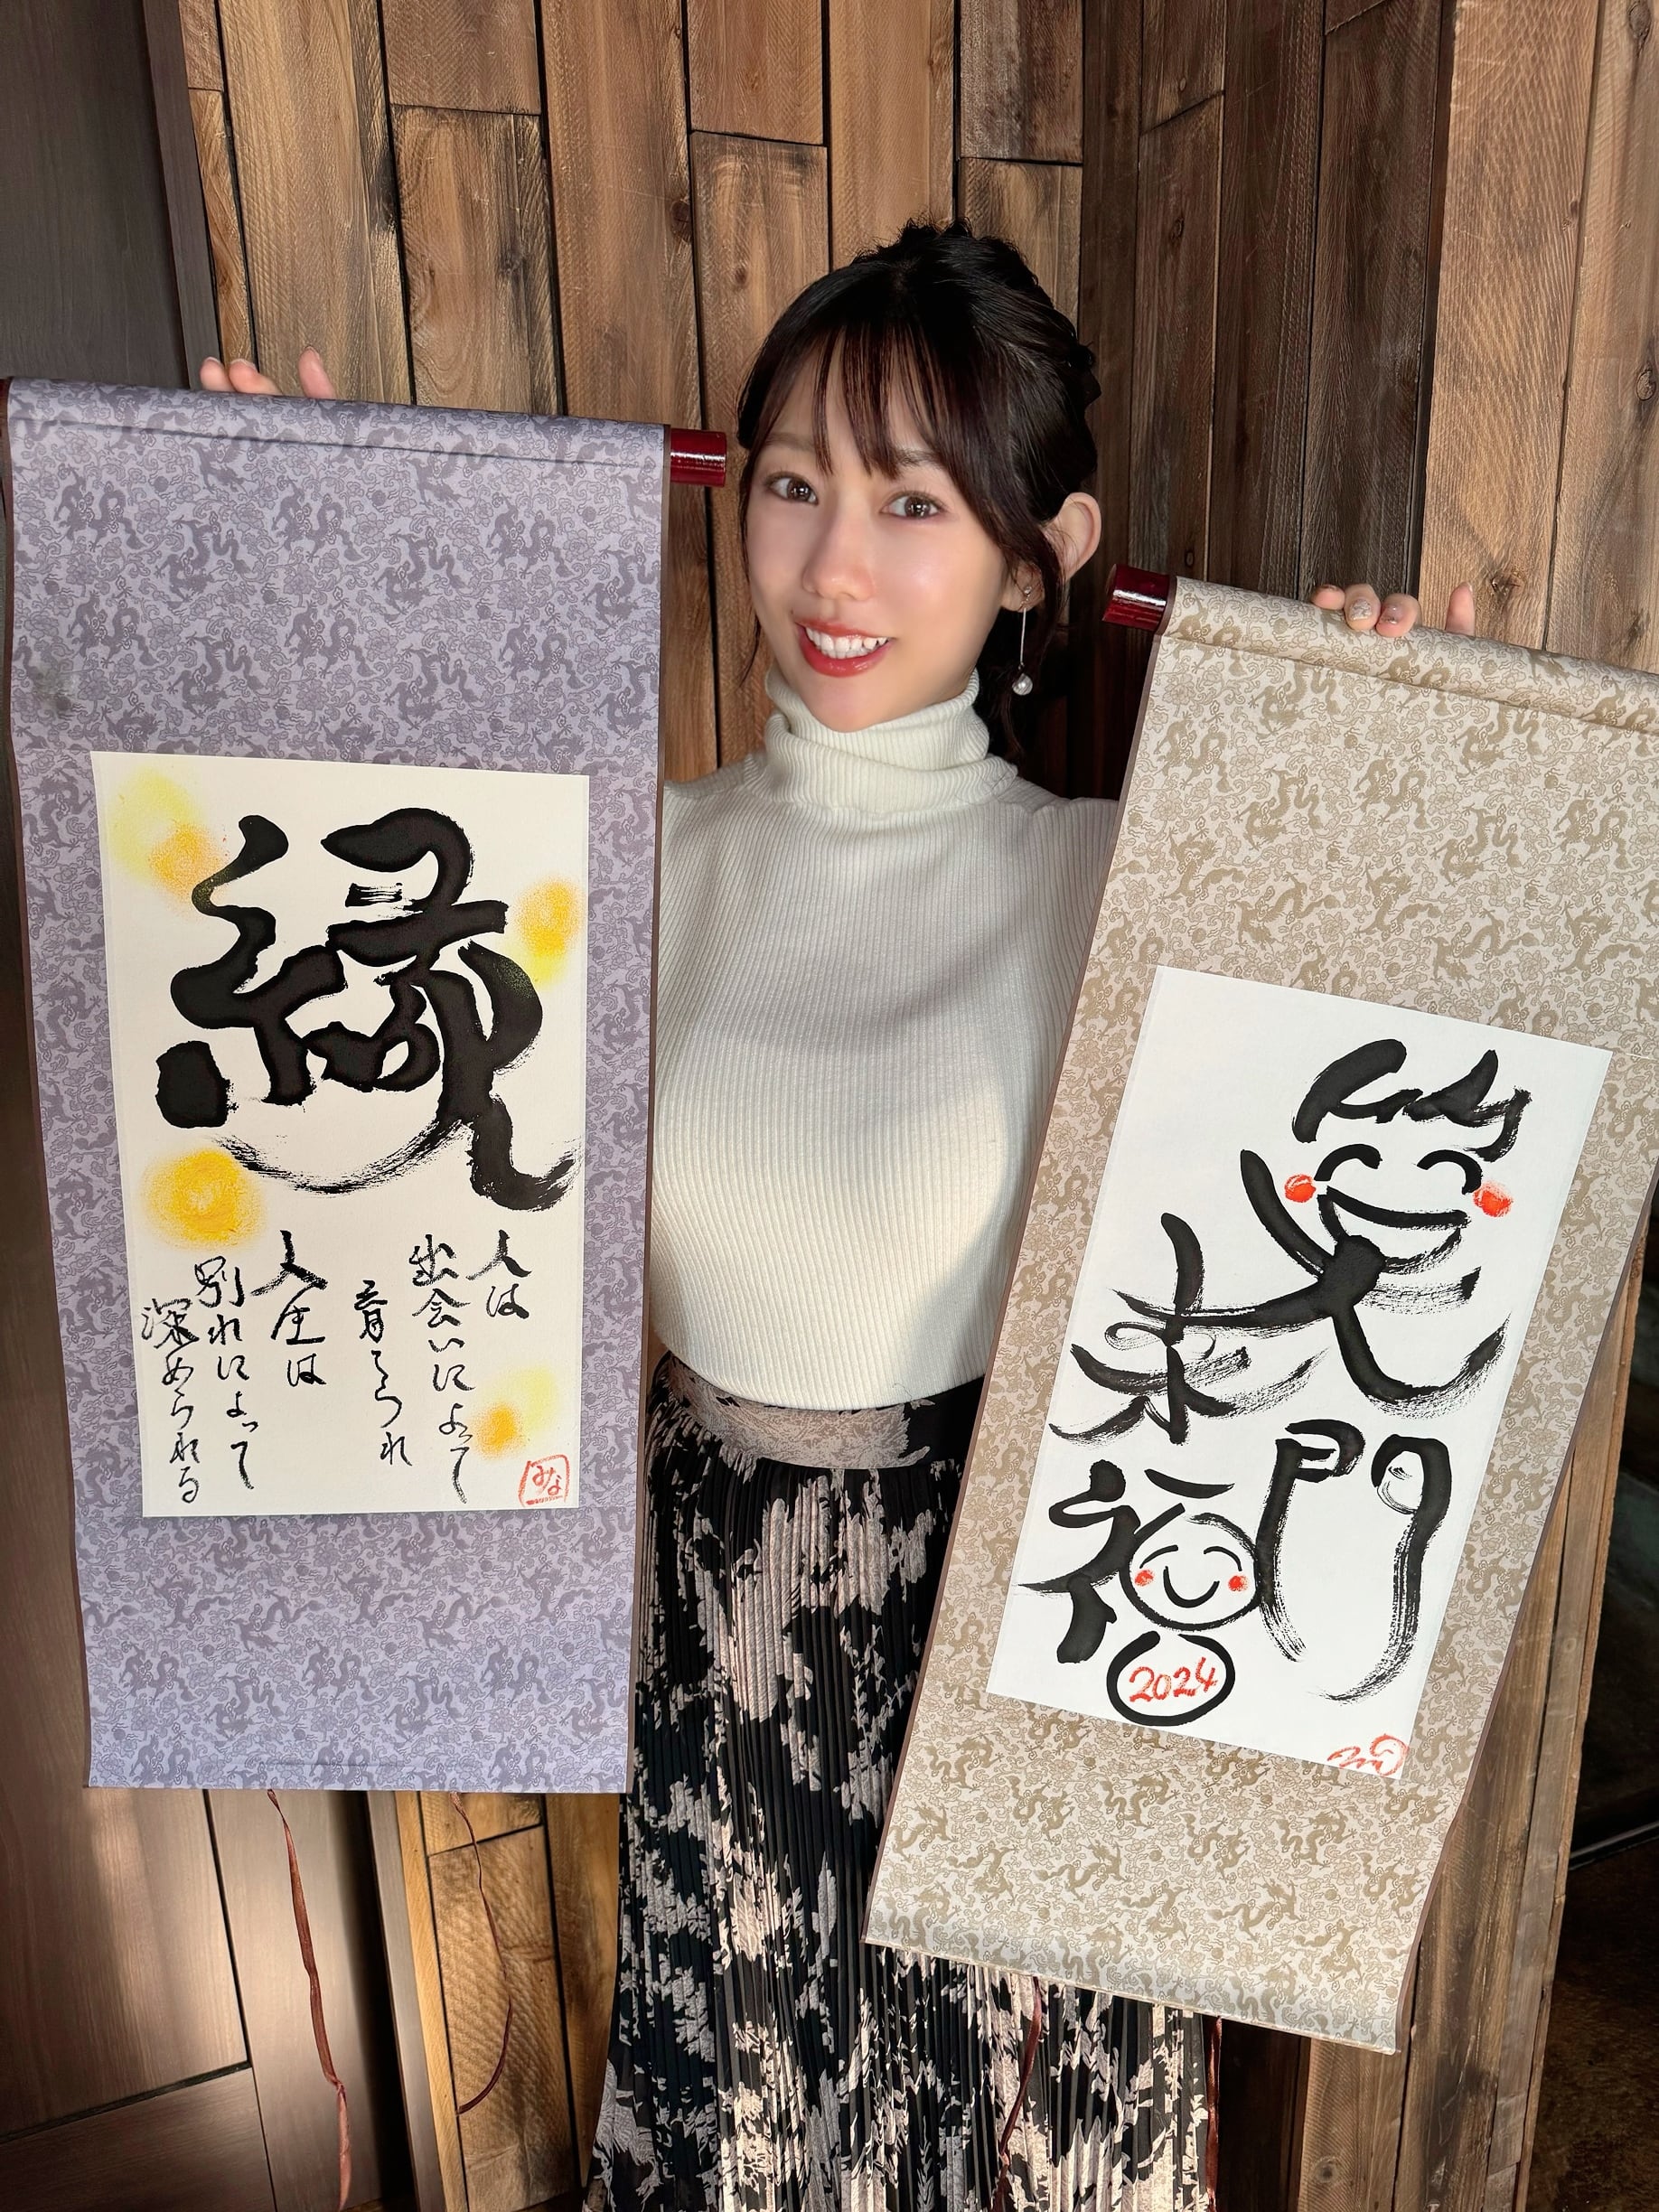 縁
人は
出会いによって
育てられ
人生は
別れによって
深められる
みな
笑門
来福
2024